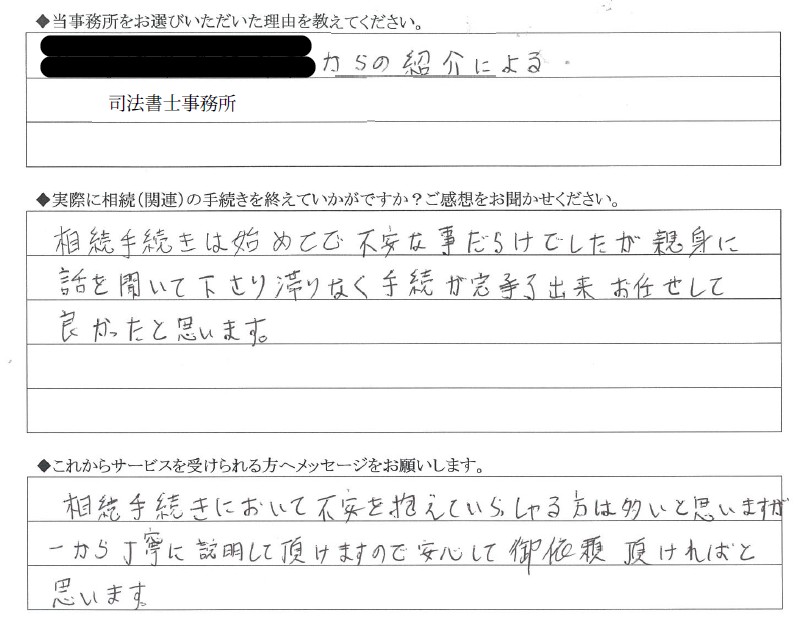 ◆当事務所をお選びいただいた理由を教えてください。
からの紹介による
司法書士事務所
◆実際に相続(関連)の手続きを終えていかがですか?ご感想をお聞かせください。
相続手続きは始めてで不安な事だらけでしたが親身に
話を聞いて下さり滞りなく手続が完了出来お任せして
良かったと思います。
◆これからサービスを受けられる方へメッセージをお願いします。
相続手続きにおいて不安を抱えていらっしゃる方は多いと思いますが
一から丁寧に説明して頂けますので安心して御依頼頂ければと
思います。